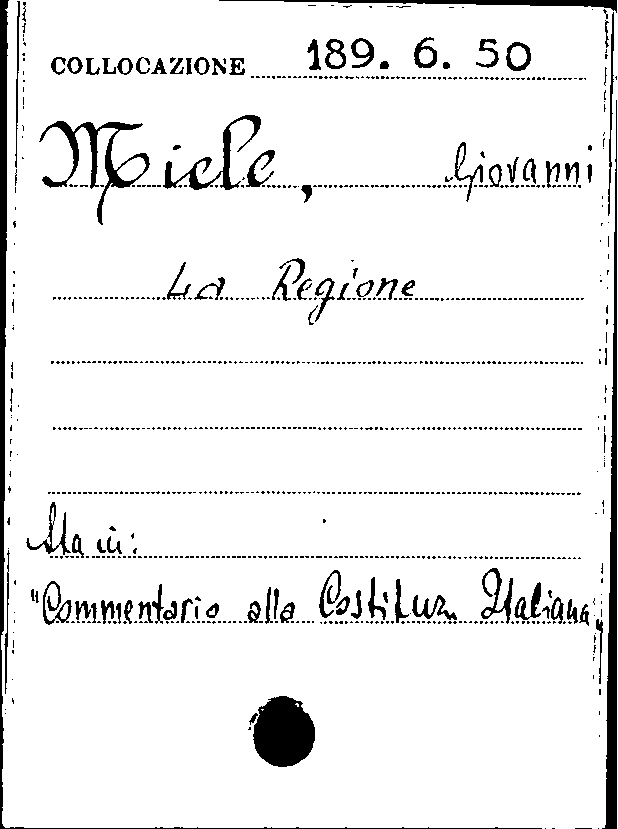 COLLOCAZIONE 189. 6. 50
Miele, Giovanni
La Regione
Sta in:
"Commentario alla Costituz. Italiana"